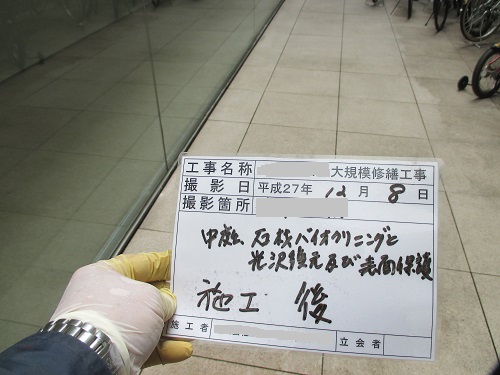 工事名称 大規模修繕工事
撮影日 平成27年 12月 8日
撮影箇所
中庭 石材バイオクリーニングと
光沢復元及び表面保護
施工 後
施工者 立会者